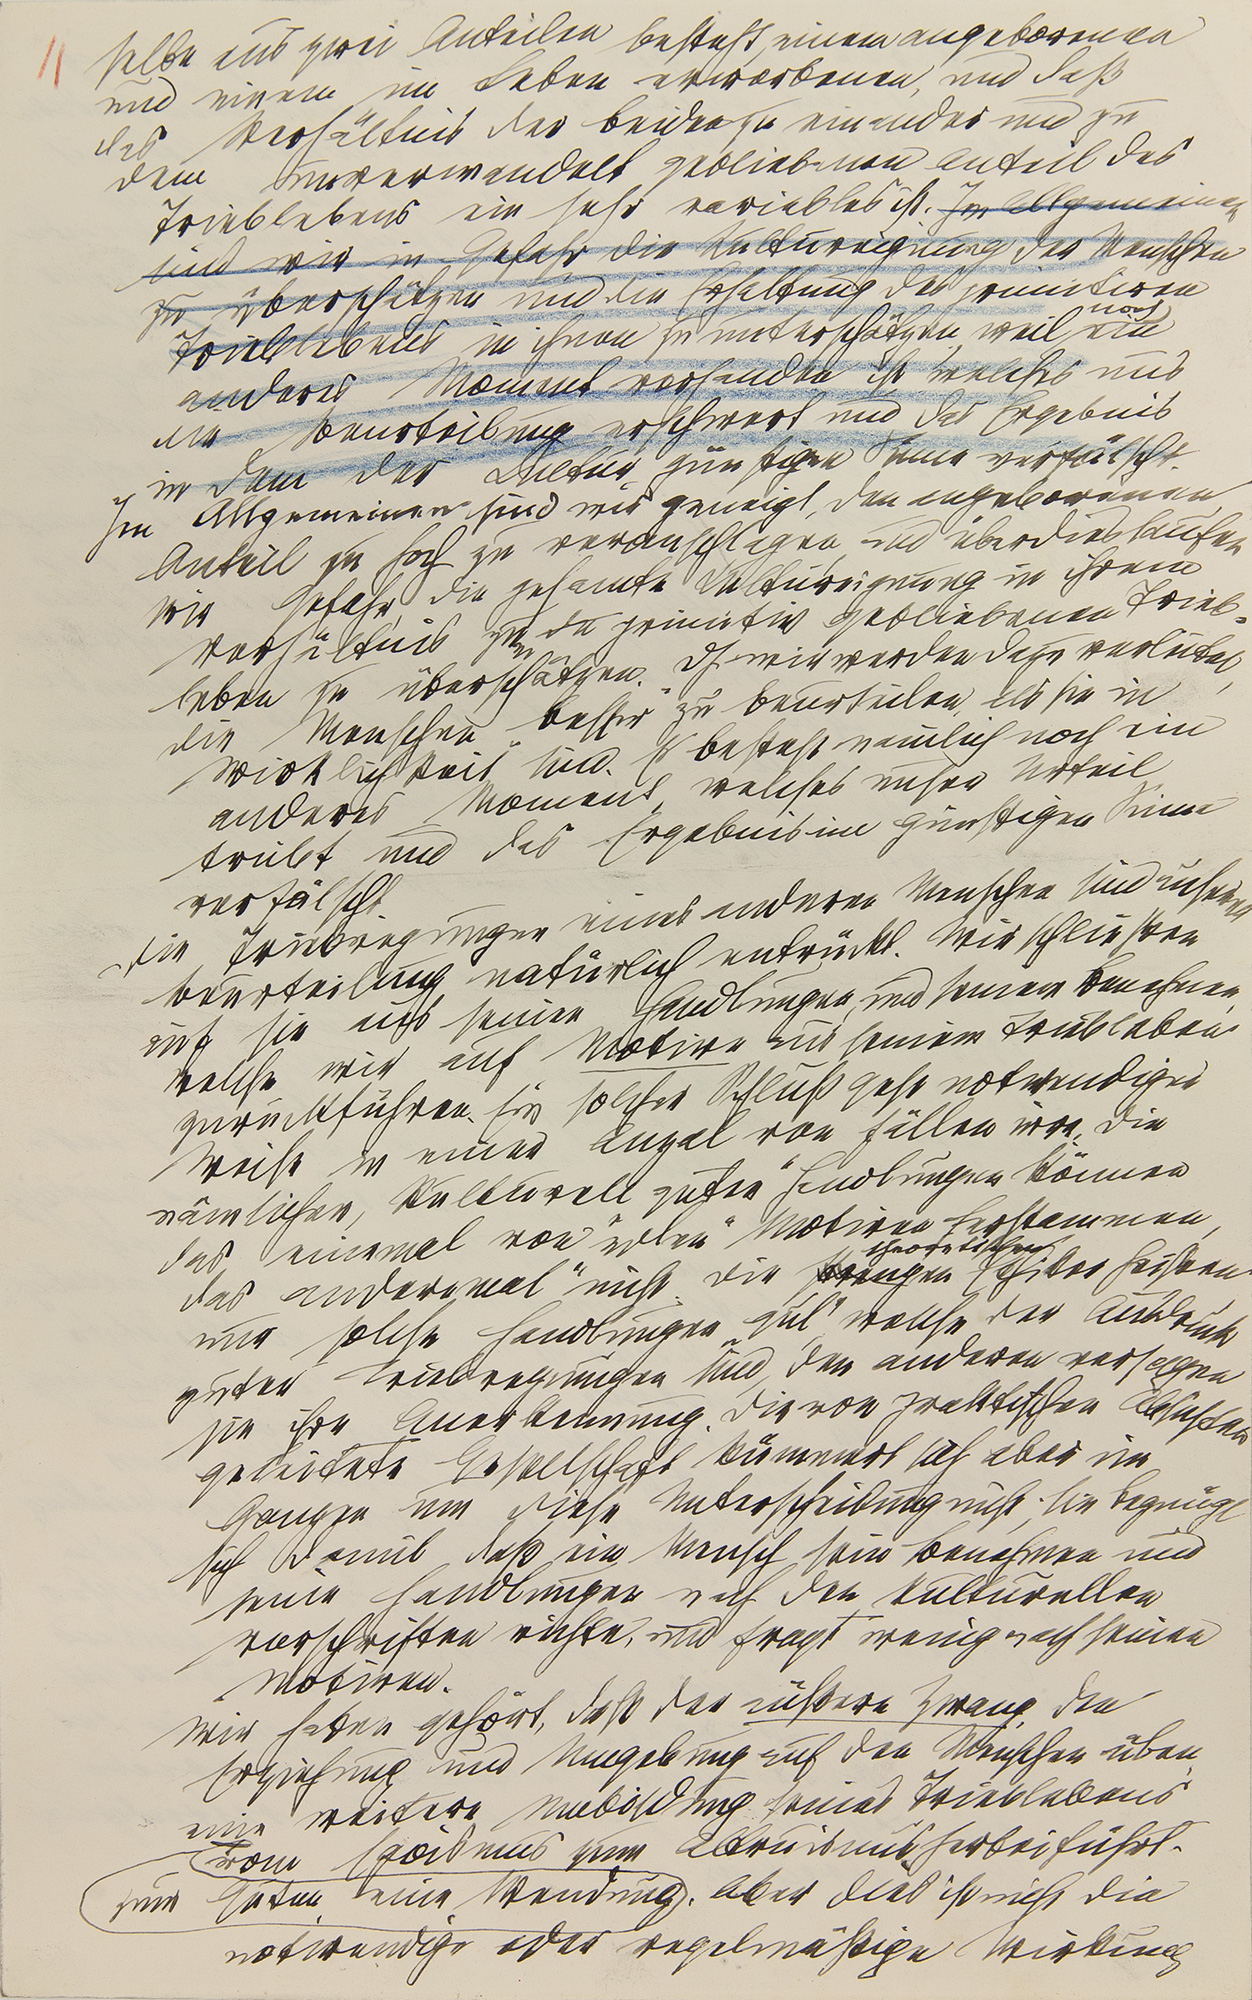 11
selbe aus zwei Anteilen besteht, einem angeborenen
und einem im Leben erworbenen, und daß
das Verhältnis der beiden zu einander und zu
dem unverwandelt gebliebenen Anteil des
Trieblebens ein sehr variables ist. Im Allgemeinen
sind wir in Gefahr die Kultureignung der Menschen
zu überschätzen und die Erhaltung des primitiven
Trieblebens in ihnen zu unterschätzen, weil ein
noch
anderes Moment vorhanden ist welches uns
die Beurteilung erschwert und das Ergebnis
in dem der Kultur günstigen Sinne verfälscht.
Im Allgemeinen sind wir geneigt, den angeborenen
Anteil zu hoch zu veranschlagen und überdies laufen
wir Gefahr, die gesamte Kultureignung in ihrem
Verhältnis zum primitiv gebliebenen Trieb-
leben zu überschätzen. Dh wir werden dazu verleitet,
die Menschen „besser“ zu beurteilen, als sie in
Wirklichkeit sind. Es besteht nämlich noch ein
anderes Moment, welches unser Urteil
trübt und das Ergebnis im günstigen Sinne
verfälscht.
Die Triebregungen eines anderen Menschen sind unserer
Beurteilung natürlich entrückt. Wir schließen
auf sie aus seinen Handlungen und seinem Benehmen,
welche wir auf Motive aus seinem Triebleben
zurückführen. Ein solcher Schluß geht notwendiger
Weise in einer Anzal von Fällen irre. Die
nämlichen, kulturell „guten“ Handlungen können
das einemal von „edlen“ Motiven herstammen,
das anderemal nicht. Die strengen Ethiker heißen
theoretischen
nur solche Handlungen „gut“ welche der Ausdruck
guter Triebregungen sind, den anderen versagen
sie ihre Anerkennung. Die von praktischen Absichten
geleitete Gesellschaft kümmert sich aber im
Ganzen um diese Unterscheidung nicht; sie begnügt
sich damit, daß ein Mensch sein Benehmen und
seine Handlungen nach den kulturellen
Vorschriften richte, und fragt wenig nach seinen
Motiven.
Wir haben gehört, daß der äußere Zwang, den
Erziehung und Umgebung auf den Menschen üben,
eine weitere Umbildung seines Trieblebens
vom Egoismus zum Altruismus herbeiführt.
zum Guten, eine Wendung. Aber dies ist nicht die
notwendige oder regelmäßige Wirkung